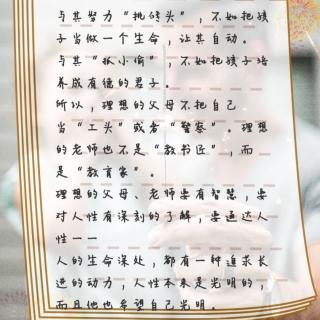 与其努力“搬砖头”，不如把孩
子当做一个生命，让其自动。
与其“抓小偷”，不如把孩子培
养成有德的君子。
所以，理想的父母不把自己
当“工头”或者“警察”。理想
的老师也不是“教书匠”，而
是“教育家”。
理想的父母、老师要有智慧，要
对人性有深刻的了解，要通达人
性——
人的生命深处，都有一种追求长
进的动力，人性本来是光明的，
而且他也希望自己光明。